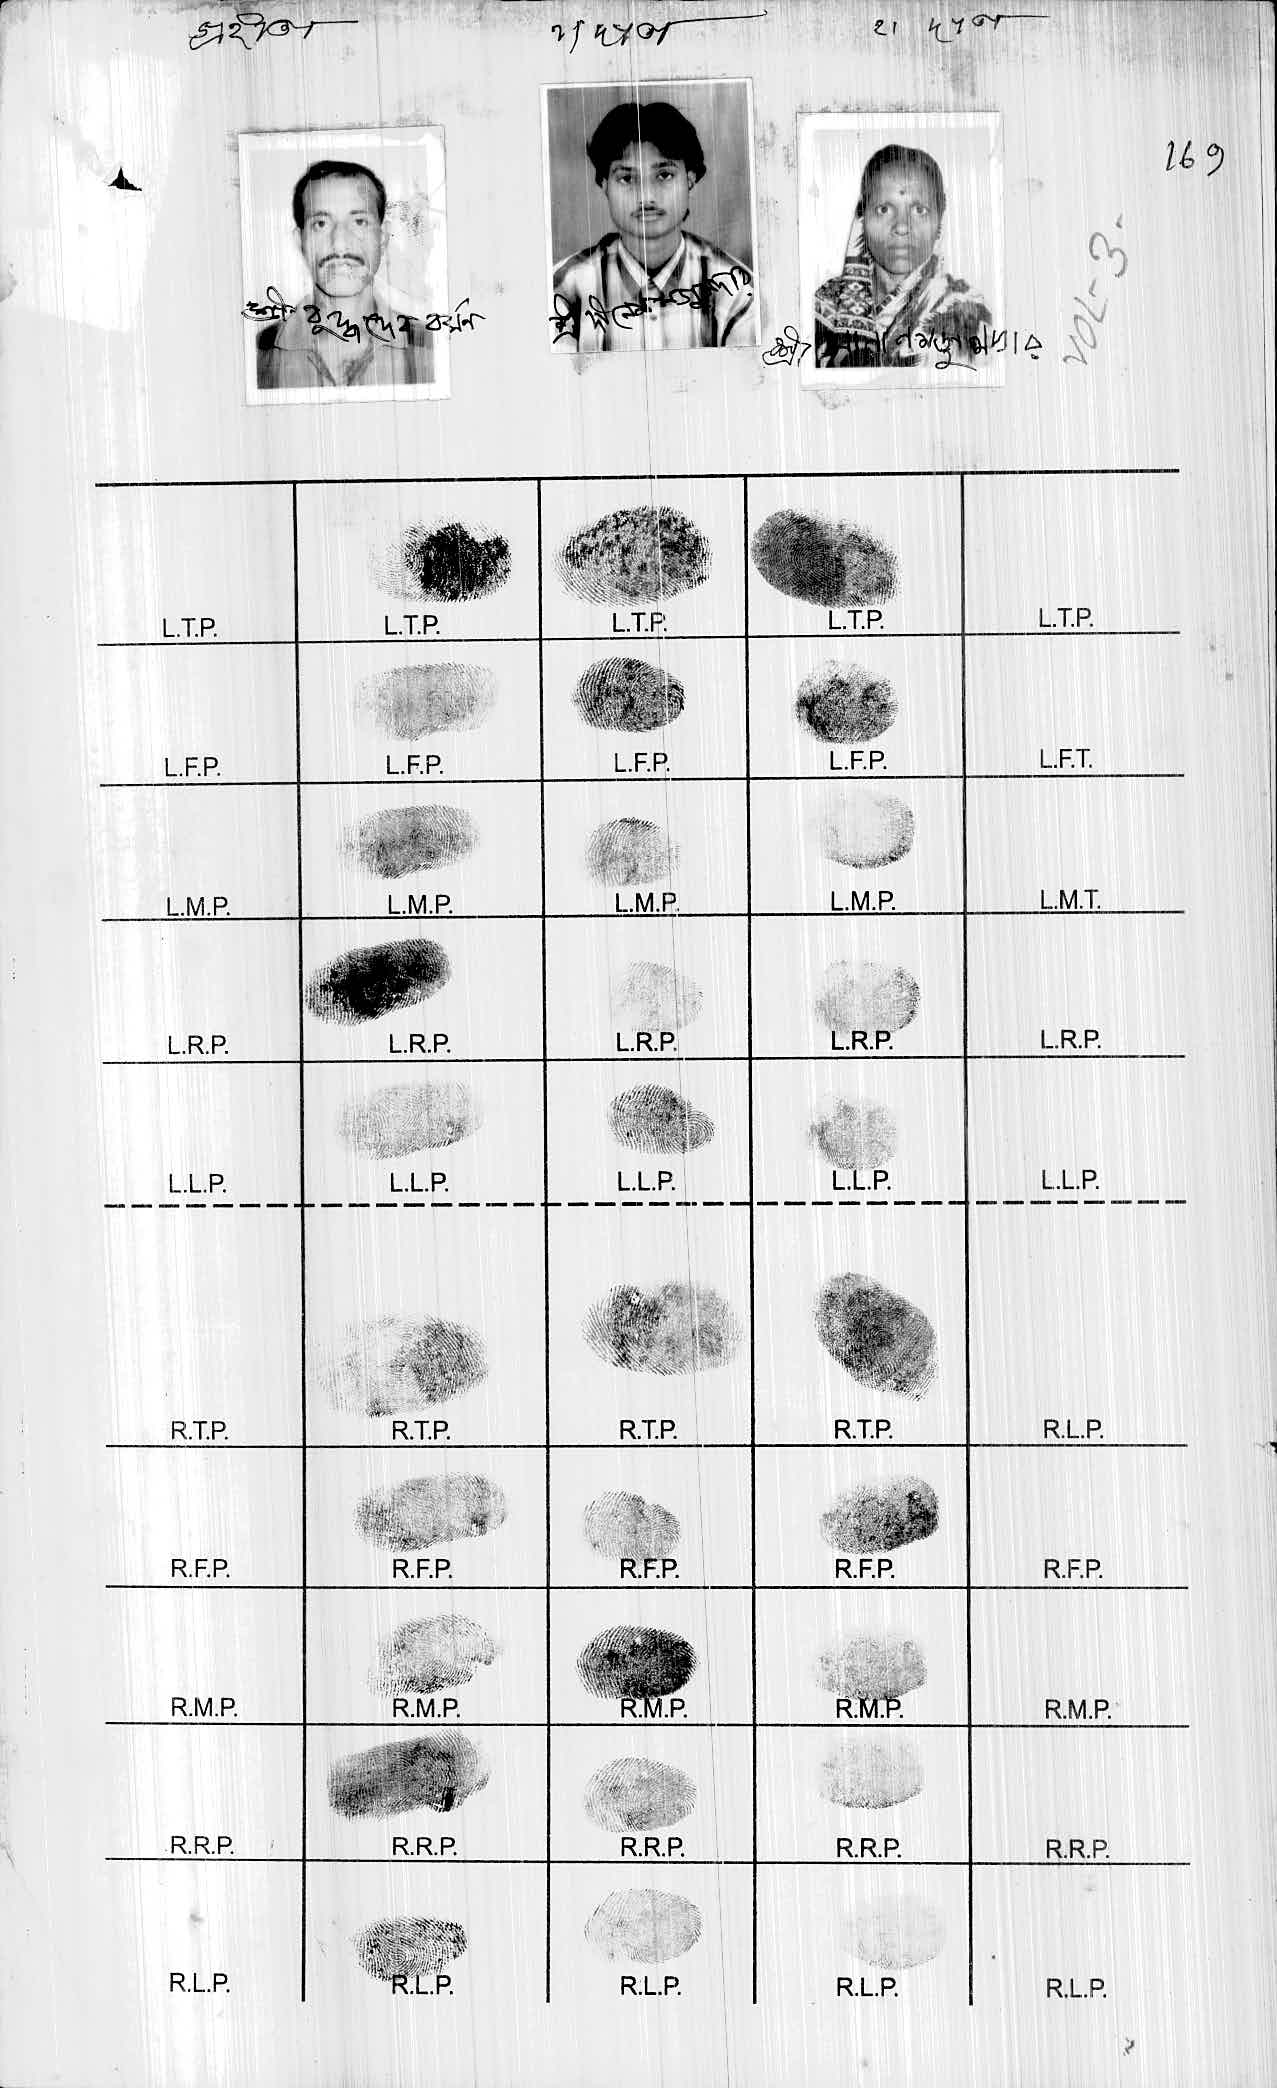 গ্রহীতা ১। দাতা ২। দাতা
169
VOL-3
শ্রী বুদ্ধদেব বর্মন
মজুমদার
L.T.P. L.T.P. L.T.P. L.T.P. L.T.P.
L.F.P. L.F.P. L.F.P. L.F.P. L.F.T.
L.M.P. L.M.P. L.M.P. L.M.P. L.M.T.
L.R.P. L.R.P. L.R.P. L.R.P. L.R.P.
L.L.P. L.L.P. L.L.P. L.L.P. L.L.P.
R.T.P. R.T.P. R.T.P. R.T.P. R.L.P.
R.F.P. R.F.P. R.F.P. R.F.P. R.F.P.
R.M.P. R.M.P. R.M.P. R.M.P. R.M.P.
R.R.P. R.R.P. R.R.P. R.R.P. R.R.P.
R.L.P. R.L.P. R.L.P. R.L.P. R.L.P.